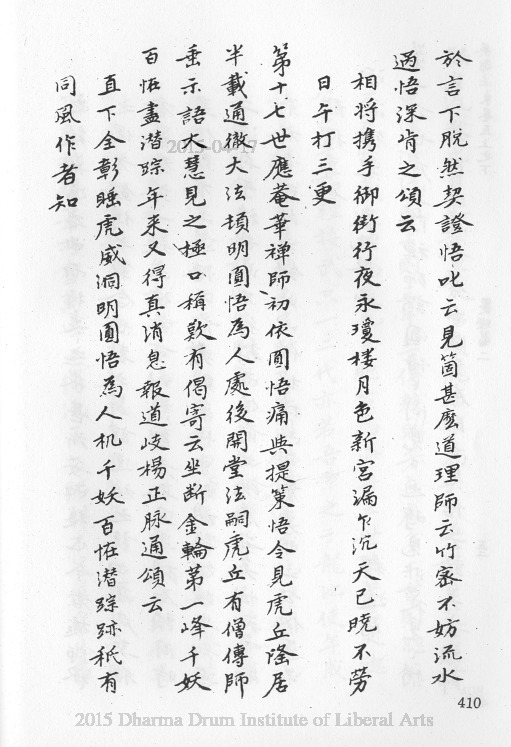 於言下脫然契證悟叱云見箇甚麼道理師云竹密不妨流水
過悟深肯之頌云
相将携手御街行夜永瓊楼月色新宮漏乍沉天已曉不勞
日午打三更
第十七世應菴華禅師初依圓悟痛与提策悟令見虎丘隆居
半載通徹大法頓明圓悟為人處後開堂法嗣虎丘有僧傳師
垂示語大慧見之極口稱歎有偈寄云坐断金輪第一峰千妖
百怪盡潜踪年来又得真消息報道岐楊正脉通頌云
直下全彰睡虎威洞明圓悟為人机千妖百怪潜踪跡秖有
同風作者知
410
2013-04-17
2015 Dharma Drum Institute of Liberal Arts